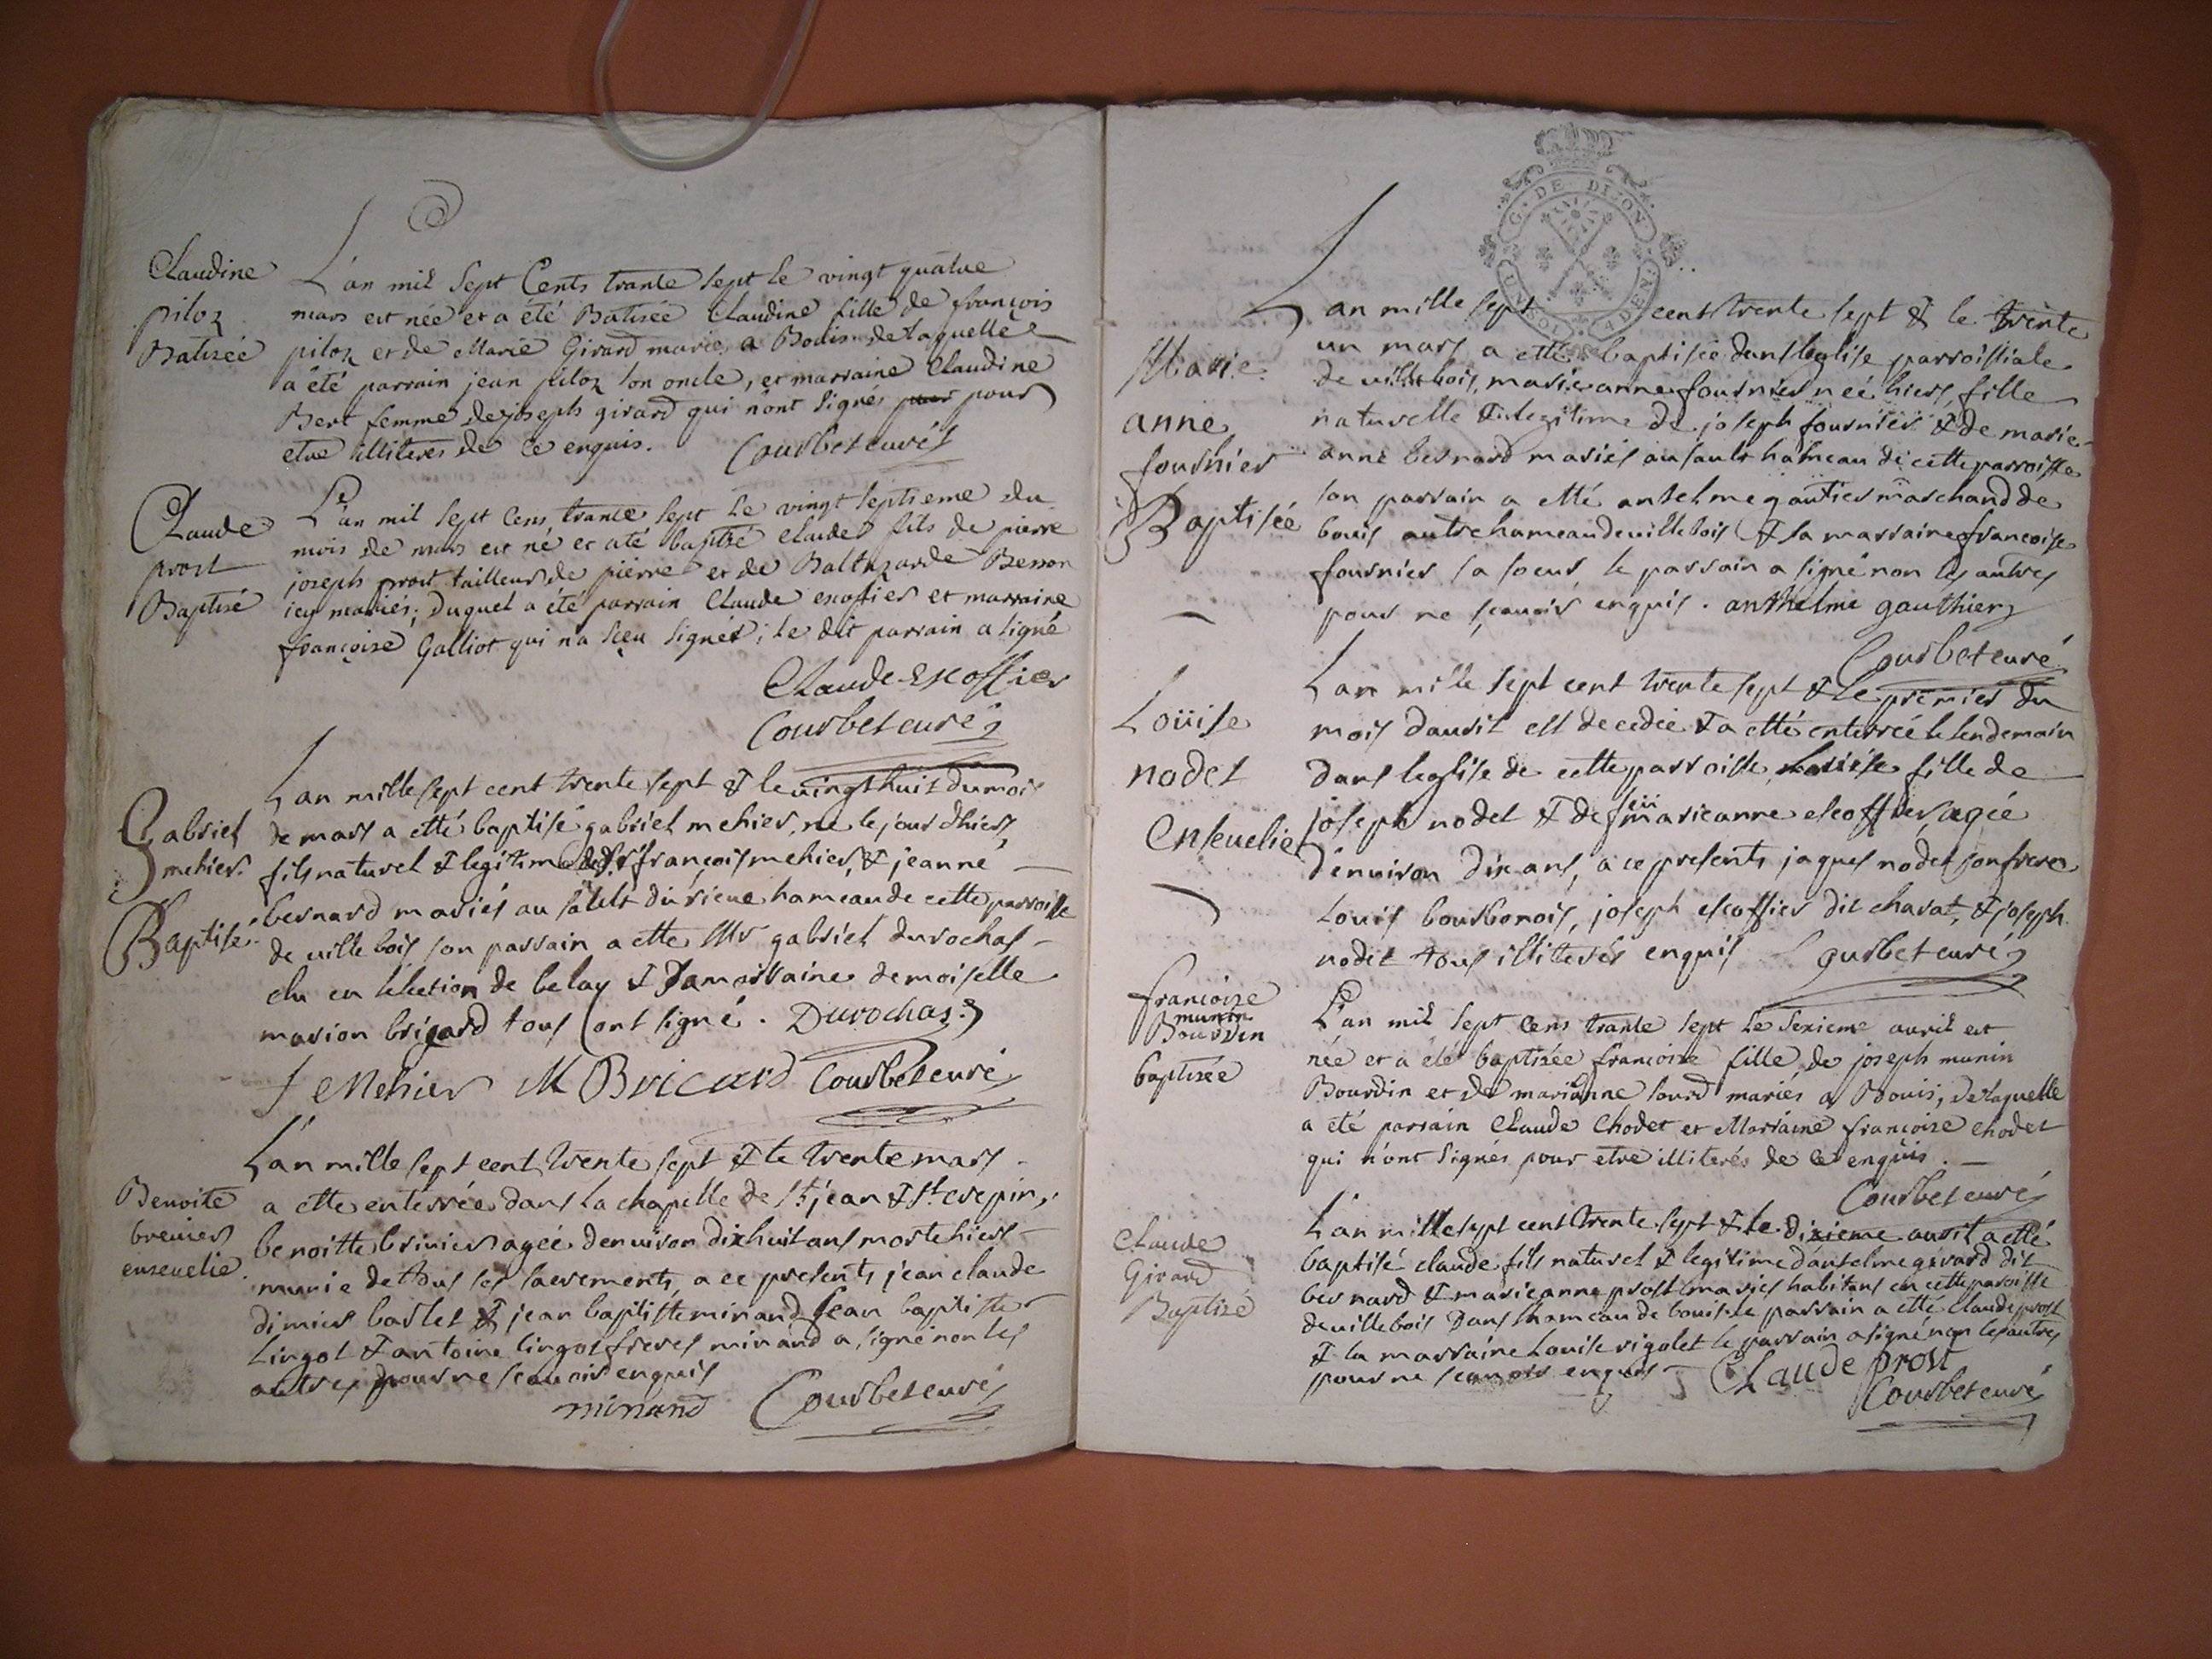 Claudine
piloz
Batisée
L'an mil Sept Cents trante sept le vingt quatre
mars est née et a été Batisée Claudine fille de françois
piloz et de Marie Girard mariés a Bouis de laquelle
a été parrain jean piloz son oncle, et marraine Claudine
Bert femme de joseph girard qui n'ont signés pour
etre illiteres de ce enquis. Courbet curé
Claude
prost
Baptisé
L'an mil sept Cens trante sept le vingt septieme du
mois de mars est né et a été baptisé claude fils de pierre
joseph prost tailleur de pierre et de Baltazarde Besson
icy mariés; duquel a été parrain Claude exoffier et marraine
françoise Galliot qui n'a sceu signer; le dit parrain a signé
Claude Excoffier
Courbet curé
Gabriel
mehier
Baptisé
Lan mille sept cent trente sept & le vingt huit du mois
de mars a etté baptisé gabriel mehier, né le jour dhier,
fils naturel & legitime de françois mehier, & jeanne
bernard mariés au sault durieue hameau de cette parroisse
de villebois son parrain a etté Mr gabriel durochas
elu en lélection de belay & sa marraine demoiselle
marion brigard tous ont signé. Durochas
Mehier M Bricard Courbet curé
Benoite
brenier
ensevelie
L'an mille sept cent trente sept & le trente mars
a etté enterrée dans la chapelle de St jean & St crepin,
benoitte brinier agée denuiron dix huit ans morte hier
munie de tous ses sacrements, a ce presents jean claude
dimier barlet & jean baptiste minand jean baptiste
Lingot & antoine lingot freres minand a signé non les
autres pour ne scauoir enquis
minand Courbet curé
G. DE DIJON
UN SOL 4 DEN.
Marie
anne
fournier
Baptisée
Lan mille sept cent trente sept & le trente
un mars a etté baptisée dans leglise parroissiale
de villebois, marie anne fournier neé hier, fille
naturelle & legitime de joseph fournier & de marie
anne bernard mariés au sault hameau de cette parroisse
son parrain a etté anthelme gautier marchand de
bouis autre hameau de villebois & sa marraine francoise
fournier sa soeur, le parrain a signé non les autres
pour ne sçauoir enquis. anthelme gauthier
Courbet curé
Loüise
nodet
Enseuelie
Lan mille sept cent trente sept & le premier du
mois dauril est decedée & a etté enterrée le lendemain
dans leglise de cette parroisse Loüise fille de
joseph nodet & de feü marieanne escoffier, agée
denuiron dix ans, a ce presents jaques nodet son frere
Louis bourbonois, joseph escoffier dit charat, & joseph
nodet tous illitterés enquis Courbet curé
francoise
munin
Bourdin
baptisée
L'an mil sept Cens trante sept le sexieme auril est
née et a été baptisée francoise fille de joseph munin
Bourdin et de marianne sourd mariés a Bouis, de laquelle
a été parrain Claude Chodet et Marraine francoise chodet
qui n'ont signés pour etre illiterés de ce enquis.
Courbet curé
Claude
Girard
Baptizé
Lan mille sept cent trente sept & le dixieme auril a etté
baptisé claude fils naturel & legitime danthelme gerard dit
bernard & marieanne prost mariés habitans en cette paroisse
de villebois dans lhameau de bouis le parrain a etté claude prost
& la marraine Louise rigolet le parrain a signé non les autres
pour ne scauoir enquis Claude prost
Courbet curé